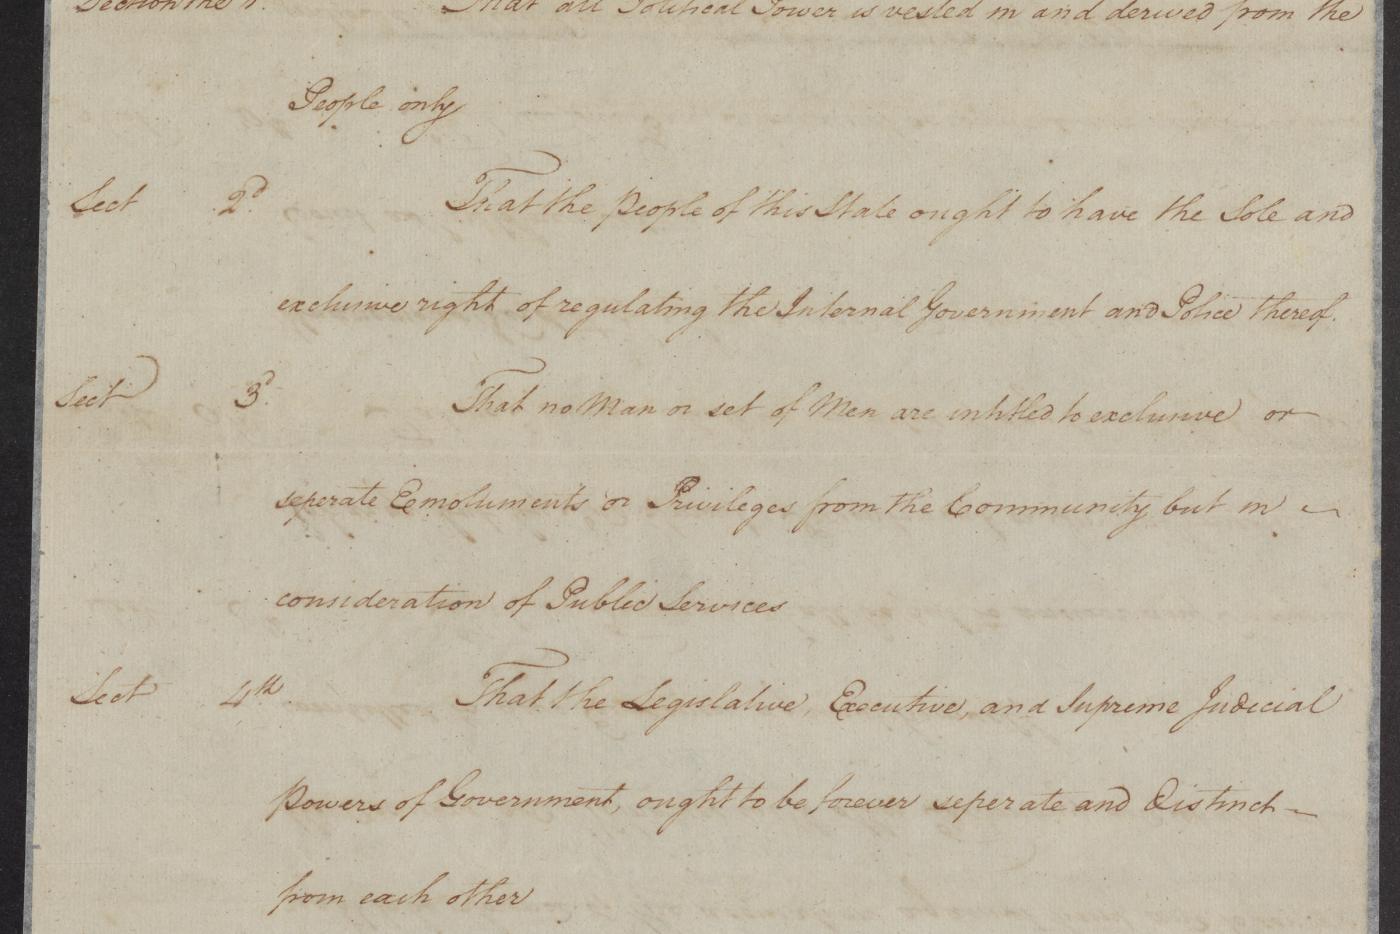 Section the 1st. That all Political Power is vested in and derived from the
People only
Sect 2d. That the People of this State ought to have the Sole and
exclusive right of regulating the Internal Government and Police thereof.
Sect 3d. That no Man or set of Men are intitled to exclusive or
seperate Eemoluments or Privileges from the Community but in
consideration of Public Services
Sect 4th. That the Legislative, Executive, and Supreme Judicial
Powers of Government, ought to be forever seperate and Distinct
from each other